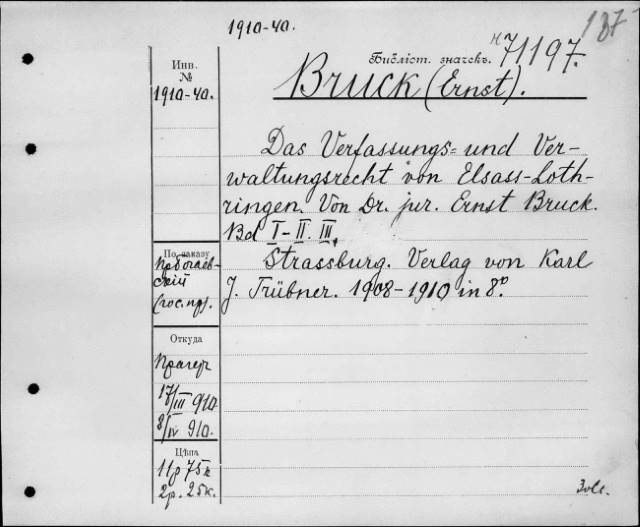 1910-40.
137
Библіот. значекъ. H 71197.
Инв.
№
1910-40.
Bruck (Ernst).
Das Verfassungs= und Ver-
waltungsrecht von Elsass-Loth-
ringen. Von Dr. jur. Ernst Bruck.
Bd I-II. III.
Strassburg. Verlag von Karl
J. Trübner. 1908-1910 in 8°
По заказу
(гос. пр).
Откуда
Прагер
17/III 910
8/IV 910.
Цѣна
11р 75к
2р. 25к.
3 vol.